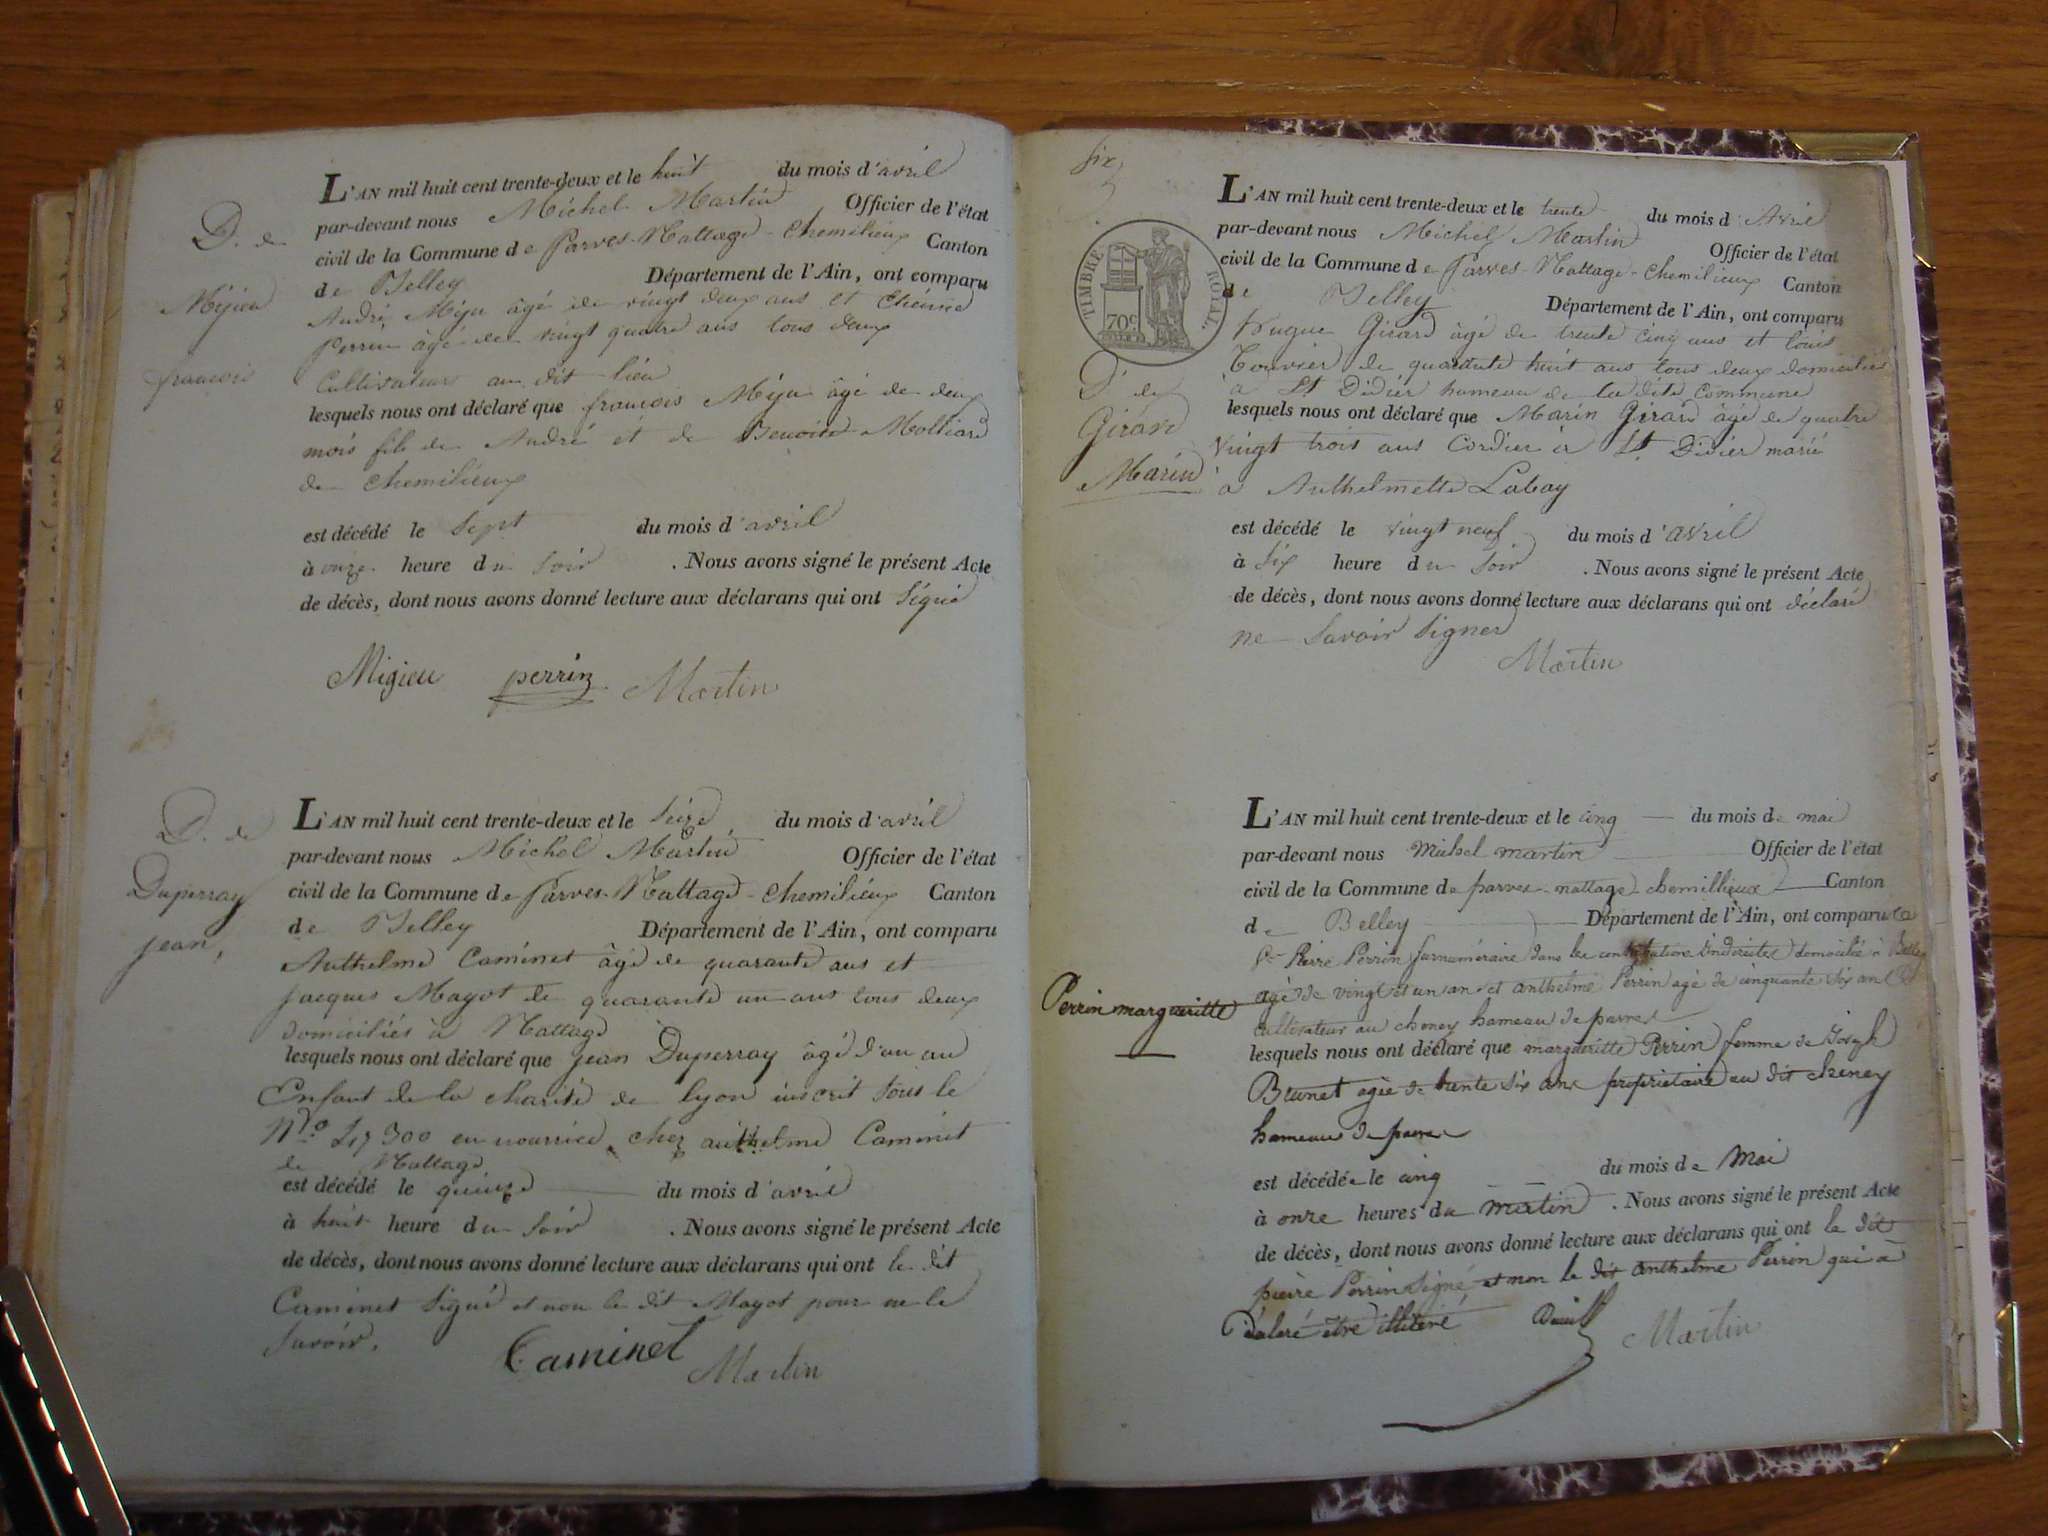 D. de
Mijeu
francois
L'AN mil huit cent trente-deux et le huit du mois d'avril
par-devant nous Michel Martin Officier de l'état
civil de la Commune de Parves-Nattage-Chemilieux Canton
de Belley Département de l'Ain, ont comparu
André Miju âgé de vingt deux ans et Etienne
Perrin âgé de vingt quatre ans tous deux
Cultivateurs au dit lieu
lesquels nous ont déclaré que francois Miju âgé de deux
mois fils de André et de Benoite Molliard
de Chemilieux
est décédé le Sept du mois d'avril
à onze heure du Soir . Nous avons signé le présent Acte
de décès, dont nous avons donné lecture aux déclarans qui ont Signé
Migieu perrin Martin
D. de
Duperray
jean,
L'AN mil huit cent trente-deux et le Seize du mois d'avril
par-devant nous Michel Martin Officier de l'état
civil de la Commune de Parves-Nattage-Chemilieux Canton
de Belley Département de l'Ain, ont comparu
Anthelme Caminet âgé de quarante ans et
Jacques Mayot de quarante un ans tous deux
domiciliés à Nattage
lesquels nous ont déclaré que jean Duperray âgé d'un an
Enfant de la charité de lyon inscrit Sous le
N.ro 300 en nourrice chez anthelme Caminet
de Nattage
est décédé le quinze du mois d'avril
à huit heure du Soir . Nous avons signé le présent Acte
de décès, dont nous avons donné lecture aux déclarans qui ont le dit
Caminet Signé et non le dit Mayot pour ne le
Savoir.
Caminet Martin
Six
TIMBRE ROYAL.
70c
D. de
Girard
Marin
L'AN mil huit cent trente-deux et le trente du mois d'Avril
par-devant nous Michel Martin Officier de l'état
civil de la Commune de Parves-Nattage-Chemilieux Canton
de Belley Département de l'Ain, ont comparu
Hugue Girard âgé de trente cinq ans et louis
Touvier de quarante huit ans tous deux domiciliés
à St Didier hameau de la dite Commune
lesquels nous ont déclaré que Marin Girard âgé de quatre
vingt trois ans Cordier à St Didier marié
à Anthelmette Labay
est décédé le vingt neuf du mois d'avril
à Six heure du Soir . Nous avons signé le présent Acte
de décès, dont nous avons donné lecture aux déclarans qui ont déclaré
ne Savoir Signer
Martin
Perrin margueritte
L'AN mil huit cent trente-deux et le cinq du mois de mai
par-devant nous Michel martin Officier de l'état
civil de la Commune de parves nattage chemillieux Canton
de Belley Département de l'Ain, ont comparu
Sr Pierre Perrin Surnuméraire dans les contributions indirectes domicilié à Belley
agé de vingt et un an et anthelme Perrin agé de cinquante Six an
cultivateur au cheney hameau de parves
lesquels nous ont déclaré que margueritte Perrin femme de Joseph
Brunet agée de trente Six ans propriétaire au dit cheney
hameau de parves
est décédée le cinq du mois de Mai
à onze heures du matin . Nous avons signé le présent Acte
de décès, dont nous avons donné lecture aux déclarans qui ont le dit
pierre Perrin Signé et non le dit anthelme Perrin qui à
déclaré être illiteré Martin